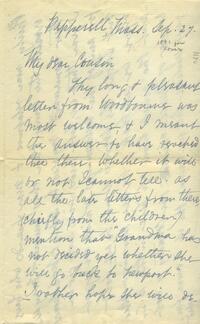 Pepperell, Mass. Sep. 27.
My dear Cousin
Thy long & pleasant
letter from Woodbourne was
most welcome & I meant
the answer to have reached
thee there. Whether it will
or not I cannot tell. as
all the later letters from there
(chiefly from the children)
mention that "Grandma has
not decided yet whether she
will go back to Newport."
I rather hope she will de-